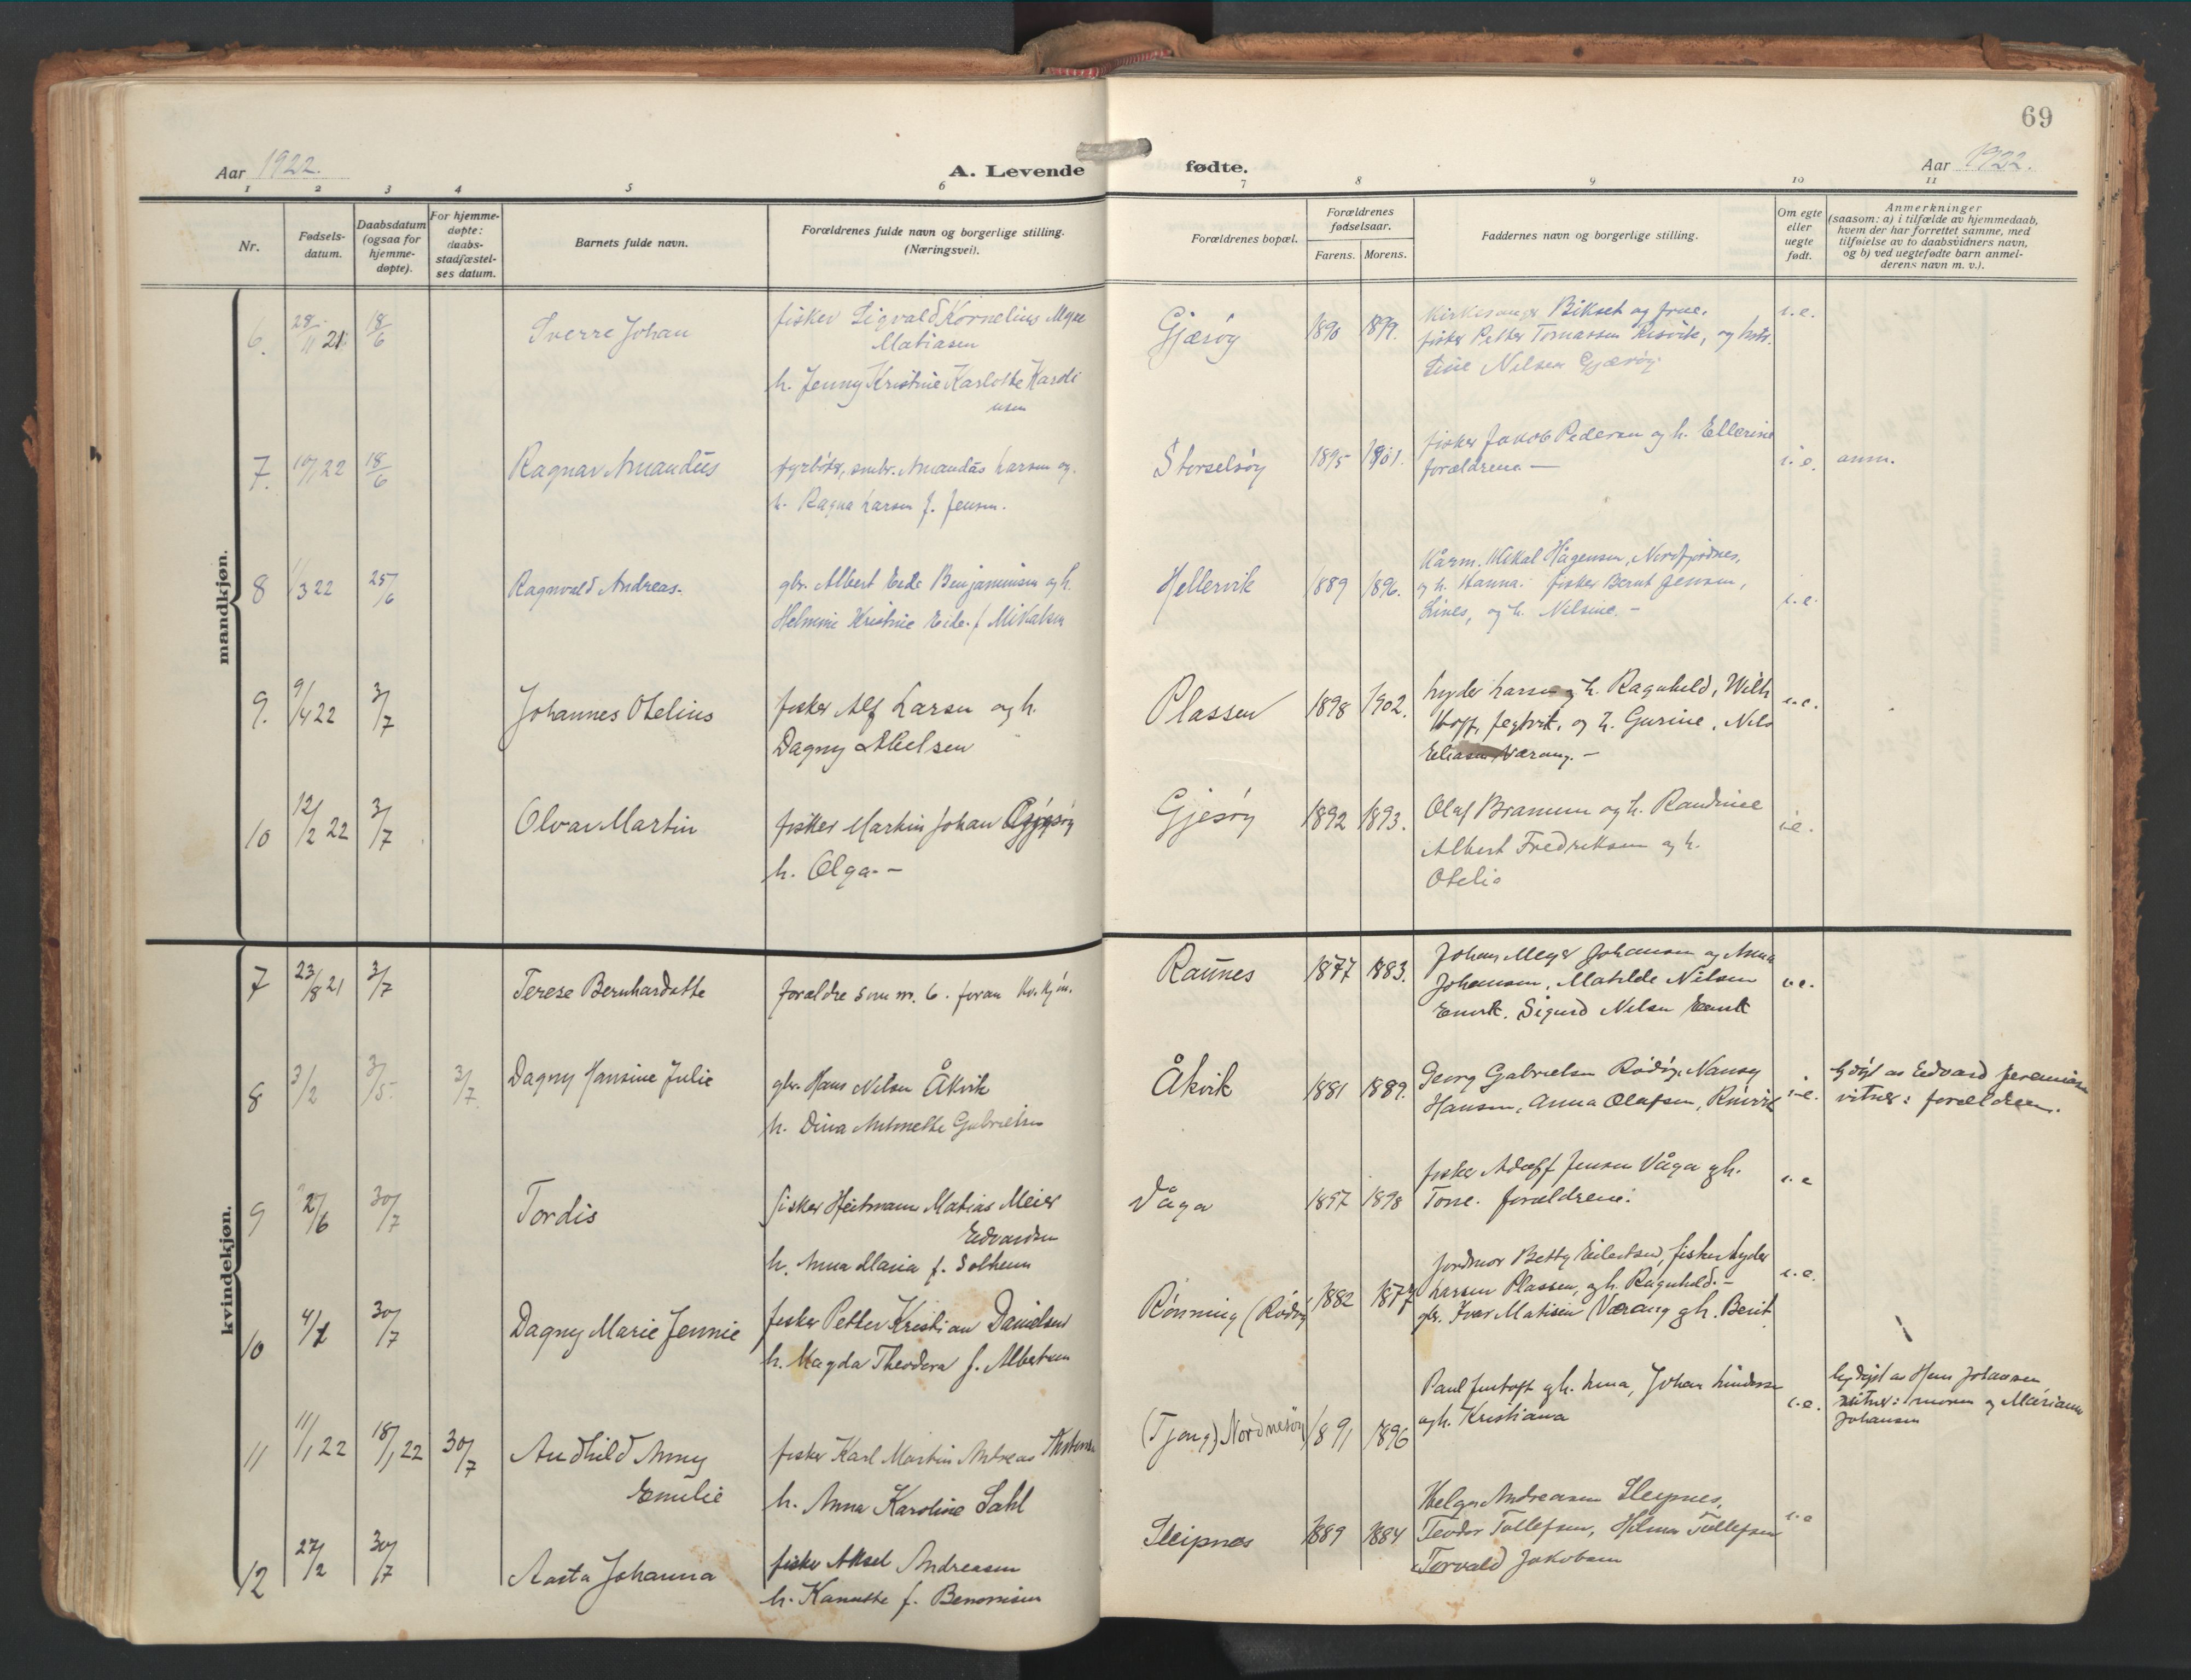 69
Aar 1922.
A. Levende fødte.
Aar 1922.
1 2 3 4 5 6 7 8 9 10 11
Nr.
Fødsels-
datum.
Daabsdatum
(ogsaa for
hjemme-
døpte).
For hjemme-
døpte:
daabs-
stadfæstel-
ses datum.
Barnets fulde navn.
Forældrenes fulde navn og borgerlige stilling.
(Næringsvei).
Forældrenes bopæl.
Forældrenes
fødselsaar.
Farens. Morens.
Faddernes navn og borgerlige stilling.
Om egte
eller
uegte
født.
Anmerkninger
(saasom: a) i tilfælde av hjemmedaab,
hvem der har forrettet samme, med
tilføielse av to daabsvidners navn,
og b) ved uegtefødte barn anmel-
derens navn m. v.).
mandkjøn.
6. 28/11 21 18/6 Sverre Johan
fisker Sigvald Kornelius
Matiasen
h. Jenny Kristine Karlotte
Gjæsøy 1890 1899.
Bikset og frue.
fisker Petter Tomassen
Nilsen Gjærøy
i.e.
7. 10/1 22 18/6 Ragnar Amandus
fyrbøter, Amandus Larsen og
h. Ragna Larsen f. Jensen.
Storselsøy 1895 1901.
fisker Jakob Pedersen og h. Ellerine
forældrene. —
i.e. anm.
8 1/3 22 25/6 Ragnvald Andreas.
gbr. Albert Eide Benjaminsen og h.
Helmine Kristine Eide f. Mikalsen
Hellervik 1889 1896.
Mikal Hågensen, Nordfjordnes,
og h. Hanna. fisker Bernt Jensen,
og h. Nilsine. —
i.e.
9. 9/4 22 3/7 Johannes Otelius
fisker Alf Larsen og h.
Dagny Abelsen
Plassen 1898 1902.
Lyder Larsen og h. Ragnhild,
og h. Gurine, Nils
Eliasen Værang. —
i.e.
10 12/2 22 3/7 Olvar Martin
fisker Martin Johan
h. Olga. —
Gjesøy 1892 1893.
Olaf Bramun og h. Raudine
Albert Fredriksen og h.
Otelie
i.e.
kvindekjøn.
7 23/8 21 3/7 Terese Bernhardette
forældre som nr. 6. foran kv.kjøn.
Raunes 1877 1883.
Johan Meyer Johansen og Anna
Johansen, Matilde Nilsen
Sigurd Nilsen
8 3/2 3/5. 3/7. Dagny Hansine Julie
gbr. Hans Nilsen Åkvik
h. Dina Antonette Gabrielsen
Åkvik 1881 1889.
Georg Gabrielsen Rødøy, Nancy
Hansen, Anna Olafsen,
i.e.
hjdøpt av Edvard Jeremiasen
vitner: forældrene.
9 27/6 30/7 Tordis
fisker Heitmann Matias Meier
Edvardsen
h. Anna Maria f. Solheim
Våga 1897 1898
fisker Adolf Jensen Våga og h.
Tone. forældrene.
i.e
10 4/1 30/7 Dagny Marie Jennie
fisker Petter Kristian Danielsen
h. Magda Theodora f. Albertsen
Rønning (Rødøy 1882 1877
Jordmor Betty Eilertsen, fisker Lyder
Larsen Plassen, og h. Ragnhild. —
gbr. Ivar Matisen Værang og h. Berit.
i.e.
11 11/1 22 18/1 22 30/7 Audhild Anny
Emelie
fisker Karl Martin Andreas
h. Anna Karoline Dahl
(Tjong) Nordnesøy 1891 1896
Paul og h. Anna, Johan
og h. Kristiana
i.e.
hjdøpt av Hans Johansen
vitner: moren og Mariane
Johansen
12 27/2 30/7 Aasta Johanna
fisker Aksel Andreasen
h. Kanutte f. Benonisen
Sleipnes 1889 1884
Helga Andreasen Sleipnes,
Teodor Tollefsen, Hilma Tollefsen
Torvald Jakobsen
i.e